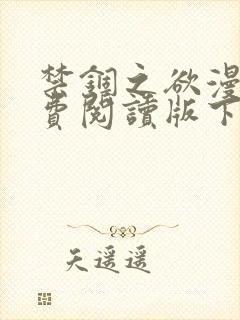 禁錮之欲漫
費閱讀版下
天遥遥